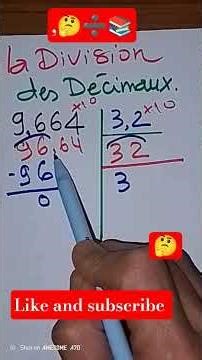 la Division
des Décimaux.
9,664 ×10 3,2 ×10
96,64 32
-96 3
0
Like and subscribe
Shot on AWESOME A70